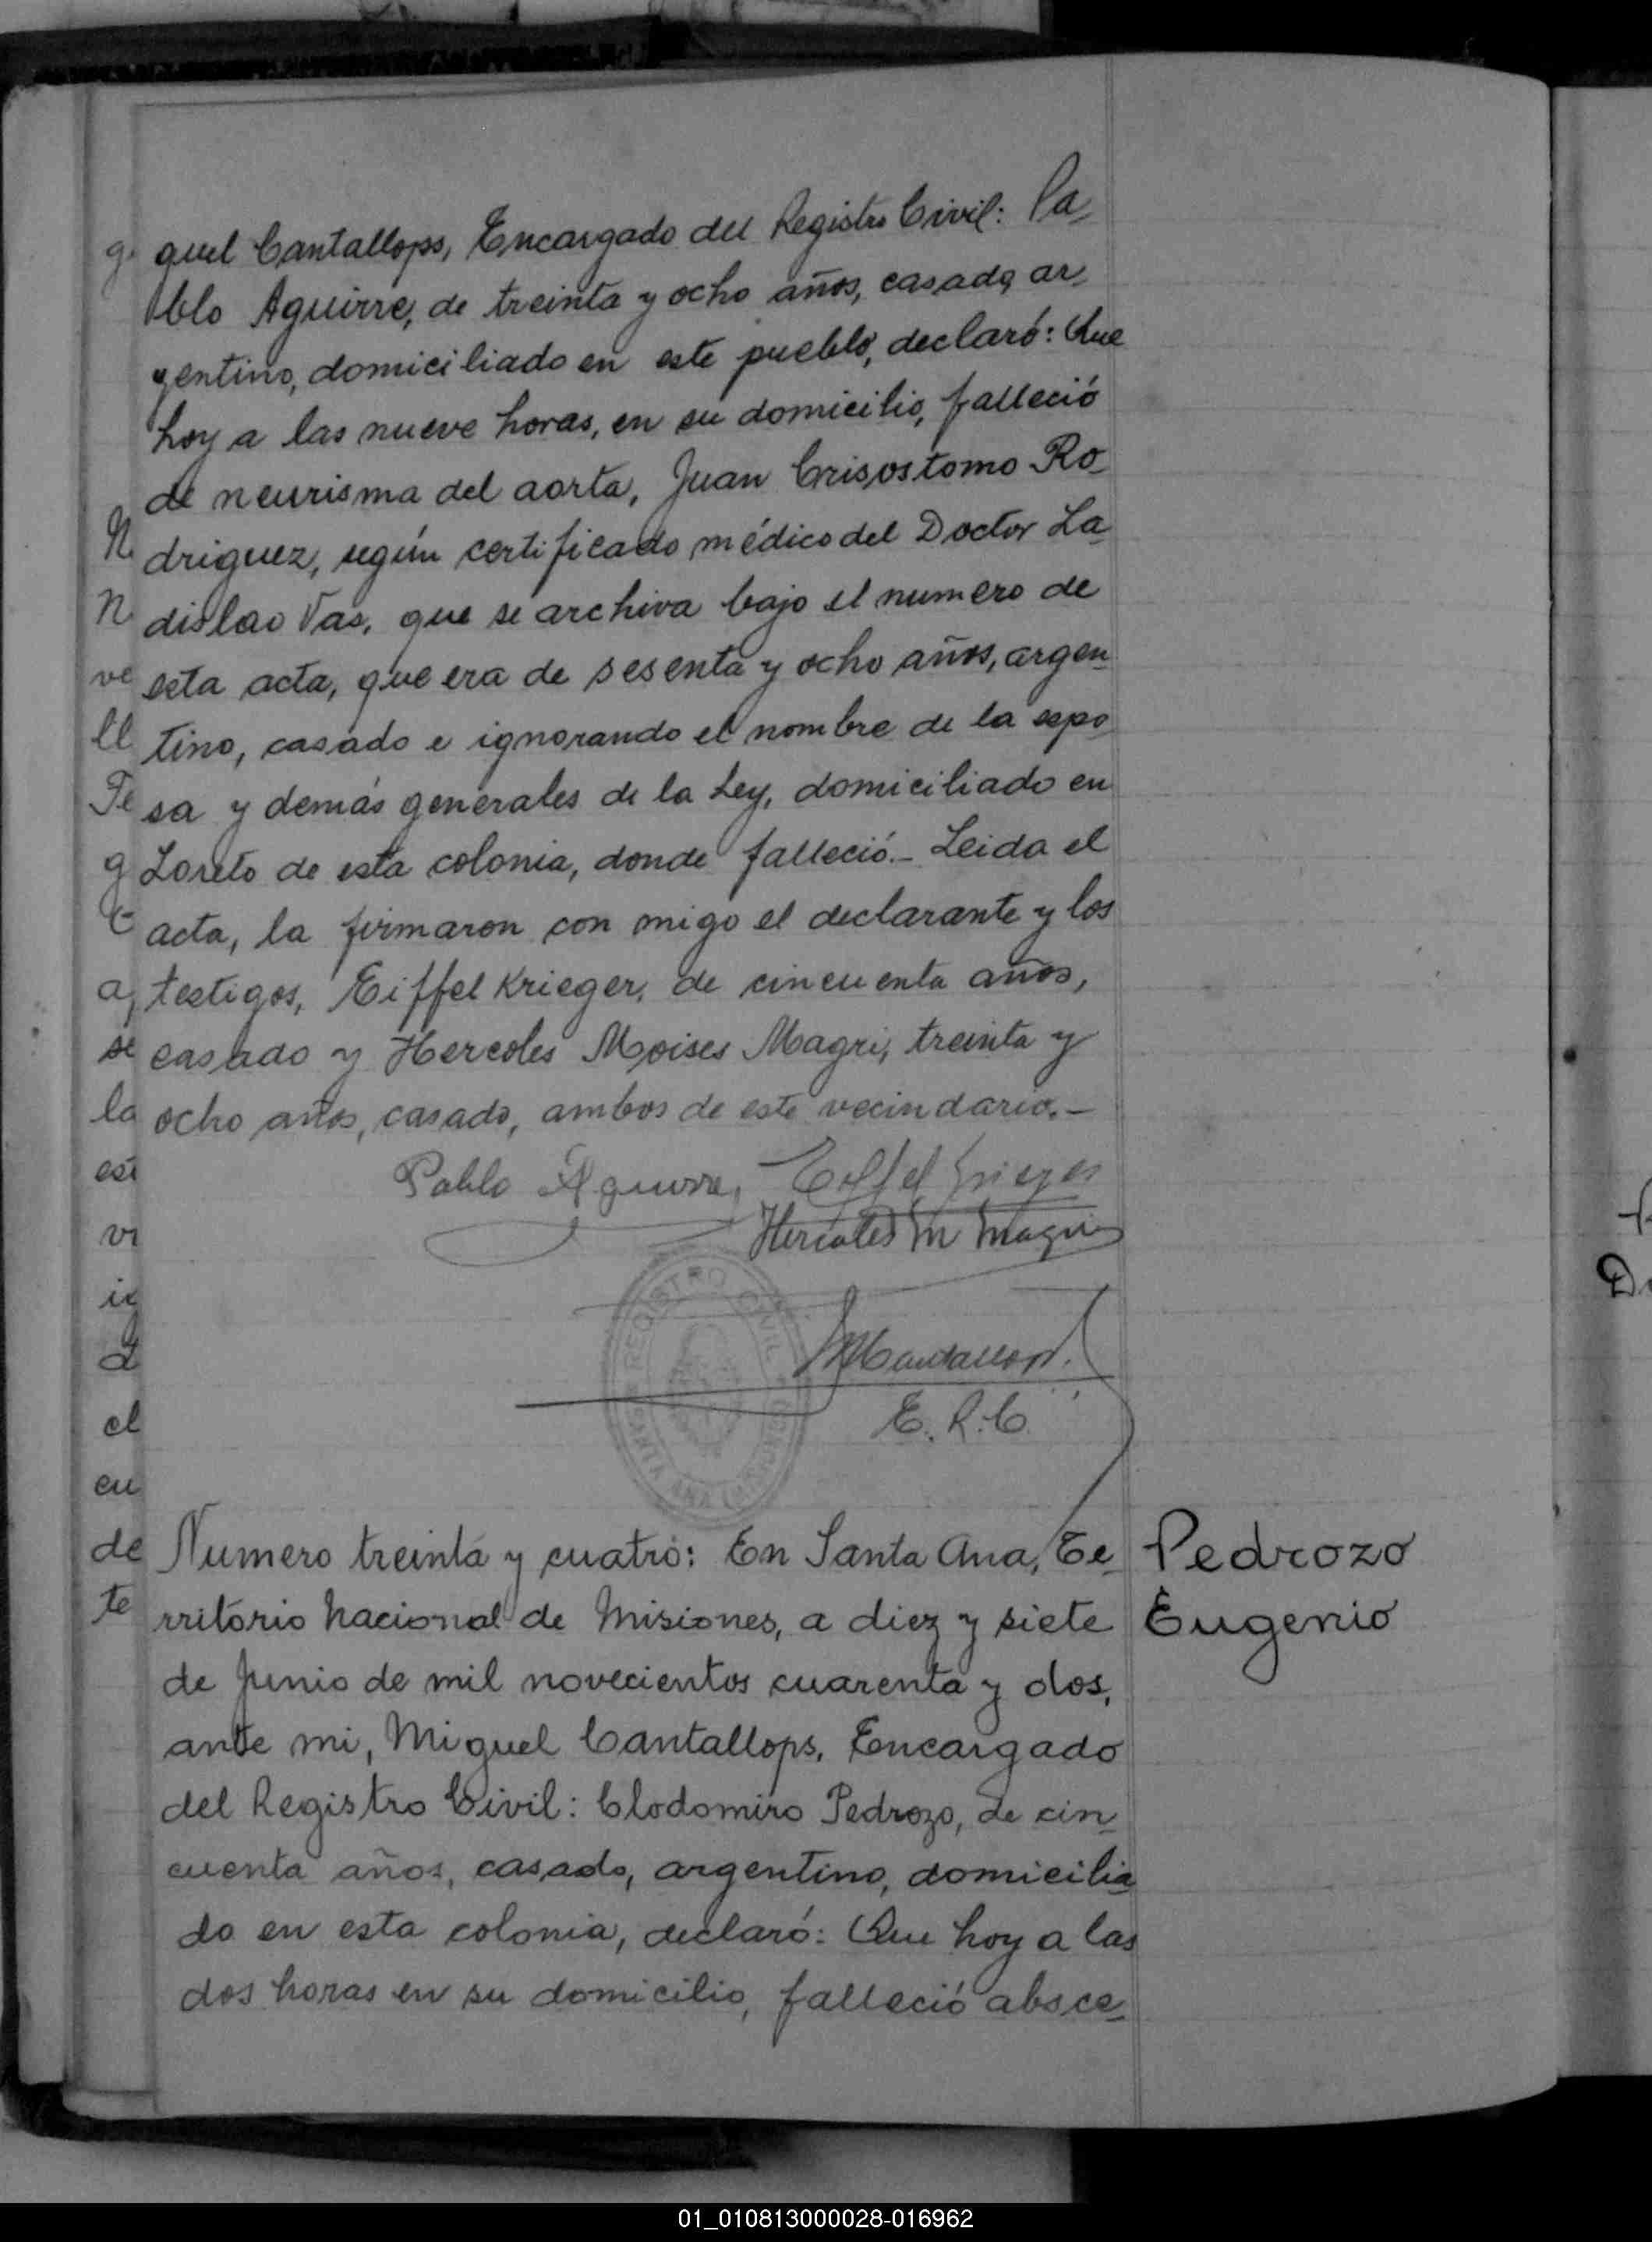 quel Cantallops, Encargado del Registro Civil: Pa-
blo Aguirre, de treinta y ocho años, casado, ar-
gentino, domiciliado en este pueblo, declaró: Que
hoy a las nueve horas, en su domicilio, falleció
de neurisma del aorta, Juan Crisostomo Ro-
driguez, según certificado médico del Doctor La-
dislao Vas, que se archiva bajo el numero de
esta acta, que era de sesenta y ocho años, argen-
tino, casado e ignorando el nombre de la espo-
sa y demás generales de la Ley, domiciliado en
Loreto de esta colonia, donde falleció.- Leida el
acta, la firmaron con migo el declarante y los
testigos, Eiffel Krieger, de cincuenta años,
casado y Hercoles Moises Magri, treinta y
ocho años, casado, ambos de este vecindario.-
Pablo Aguirre, Eiffel Krieger
Hercoles M Magri
REGISTRO CIVIL SANTA ANA (MISIONES)
MCantallops.
E. R. C.
Numero treinta y cuatro: En Santa Ana, Te- Pedrozo
rritorio Nacional de Misiones, a diez y siete Eugenio
de Junio de mil novecientos cuarenta y dos,
ante mi, Miguel Cantallops, Encargado
del Registro Civil: Clodomiro Pedrozo, de cin-
cuenta años, casado, argentino, domicilia-
do en esta colonia, declaró: Que hoy a las
dos horas en su domicilio, falleció absce-
01_010813000028-016962